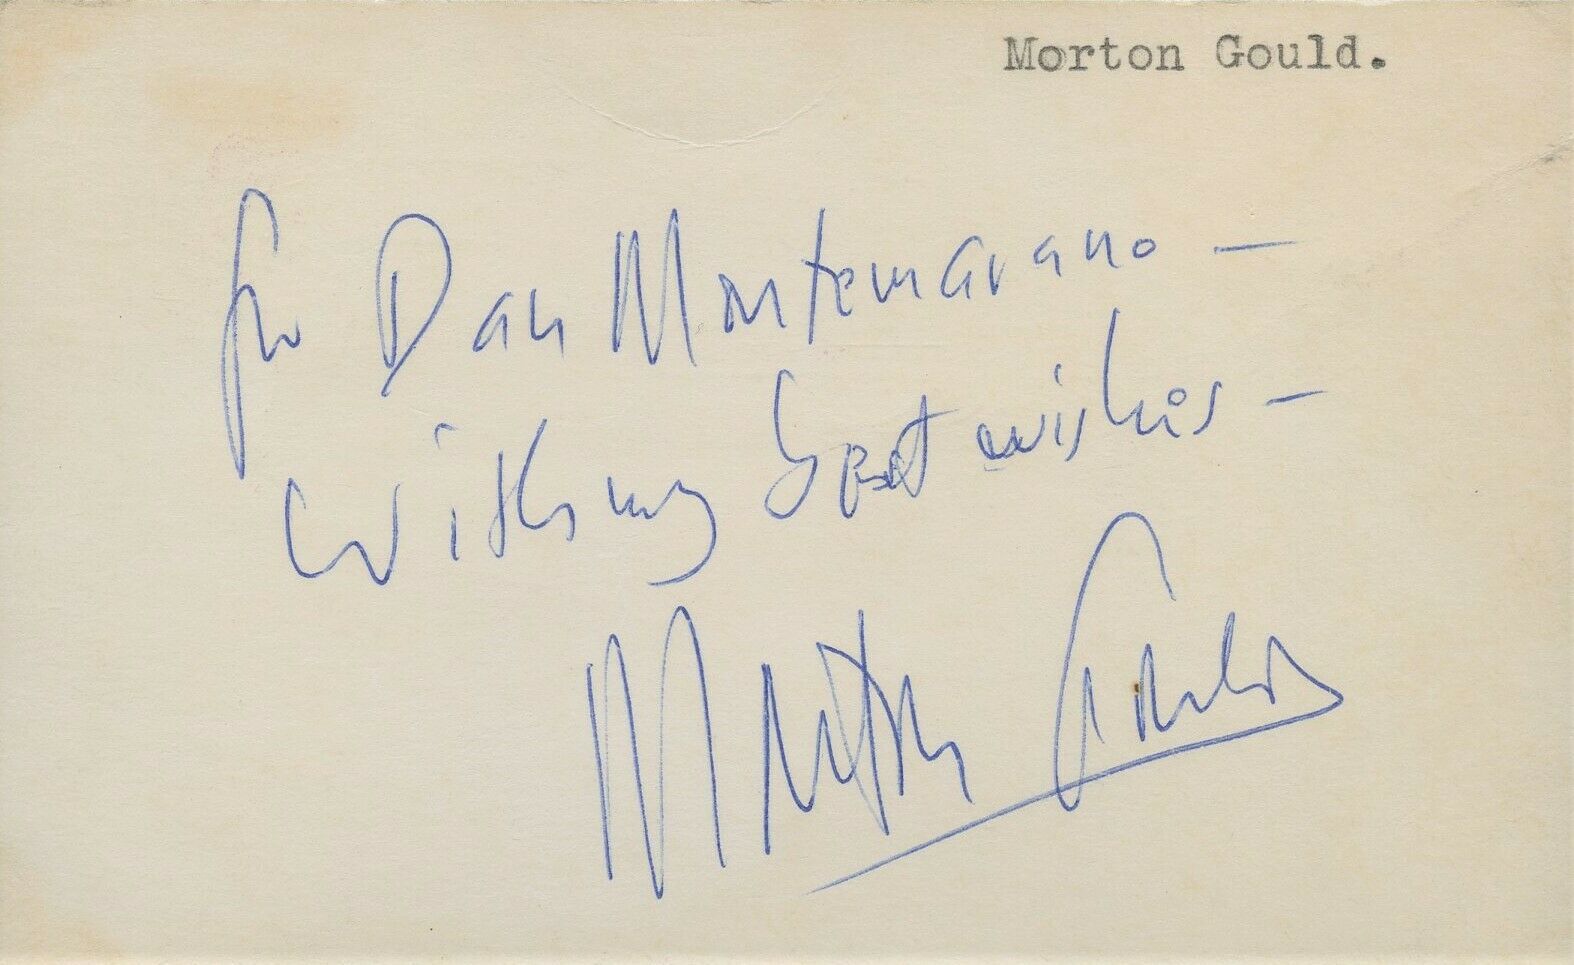 Morton Gould.
for Dan Montemarano —
with my best wishes —
Morton Gould